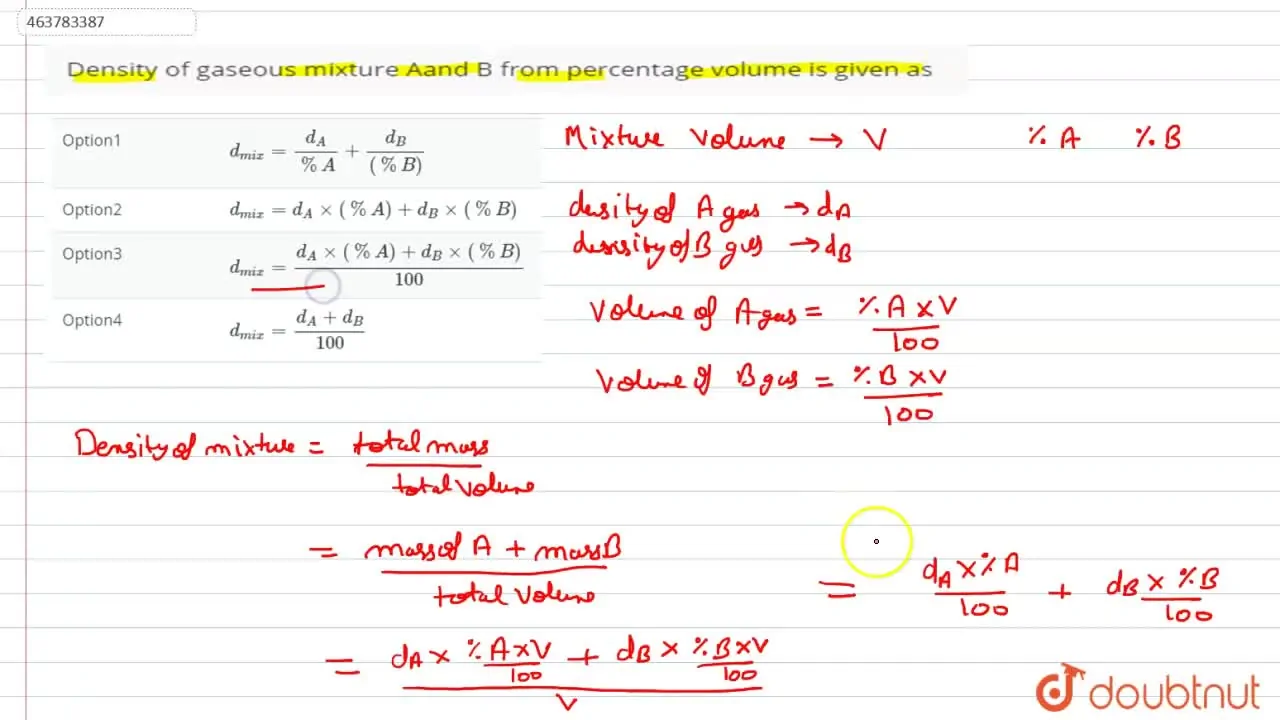 463783387
Density of gaseous mixture Aand B from percentage volume is given as
Option1 d_mix = d_A / % A + d_B / (% B)
Option2 d_mix = d_A × (% A) + d_B × (% B)
Option3 d_mix = d_A × (% A) + d_B × (% B) / 100
Option4 d_mix = d_A + d_B / 100
Mixture Volume → V % A % B
density of A gas → d_A
density of B gas → d_B
Volume of A gas = % A × V / 100
Volume of B gas = % B × V / 100
Density of mixture = total mass / total volume
= mass of A + mass B / total volume
= d_A × % A × V / 100 + d_B × % B × V / 100 / V
= d_A × % A / 100 + d_B × % B / 100
doubtnut